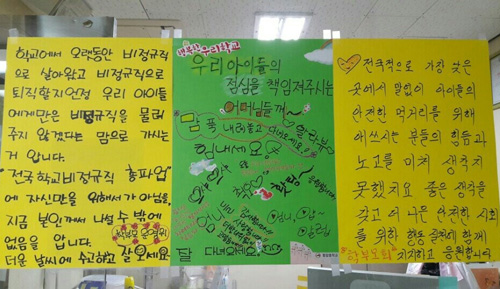 학교에서 오랫동안 비정규직
으로 살아왔고 비정규직으로
퇴직할지언정 우리 아이들
에게만은 비정규직을 물려
주지 않겠다는 맘으로 가시는
거 압니다.
"전국학교비정규직 총파업"
에 자신만을 위해서가 아님을,
지금 본인께서 나설 수 밖에
없음을 압니다.
더운 날씨에 수고하고 잘 오세요
행복한 우리학교
우리 아이들의
점심을 책임져주시는
어머님들께
맘 푹 내려놓고
힘내세요
잘 다녀오세요.
전국적으로 가장 낮은
곳에서 말없이 아이들의
안전한 먹거리를 위해
애쓰시는 분들의 힘듦과
노고를 미처 생각지
못했지요 좋은 생각을
갖고 더 나은 안전한 사회
를 위한 행동 실천에 함께
지지하고 응원합니다
학부모회